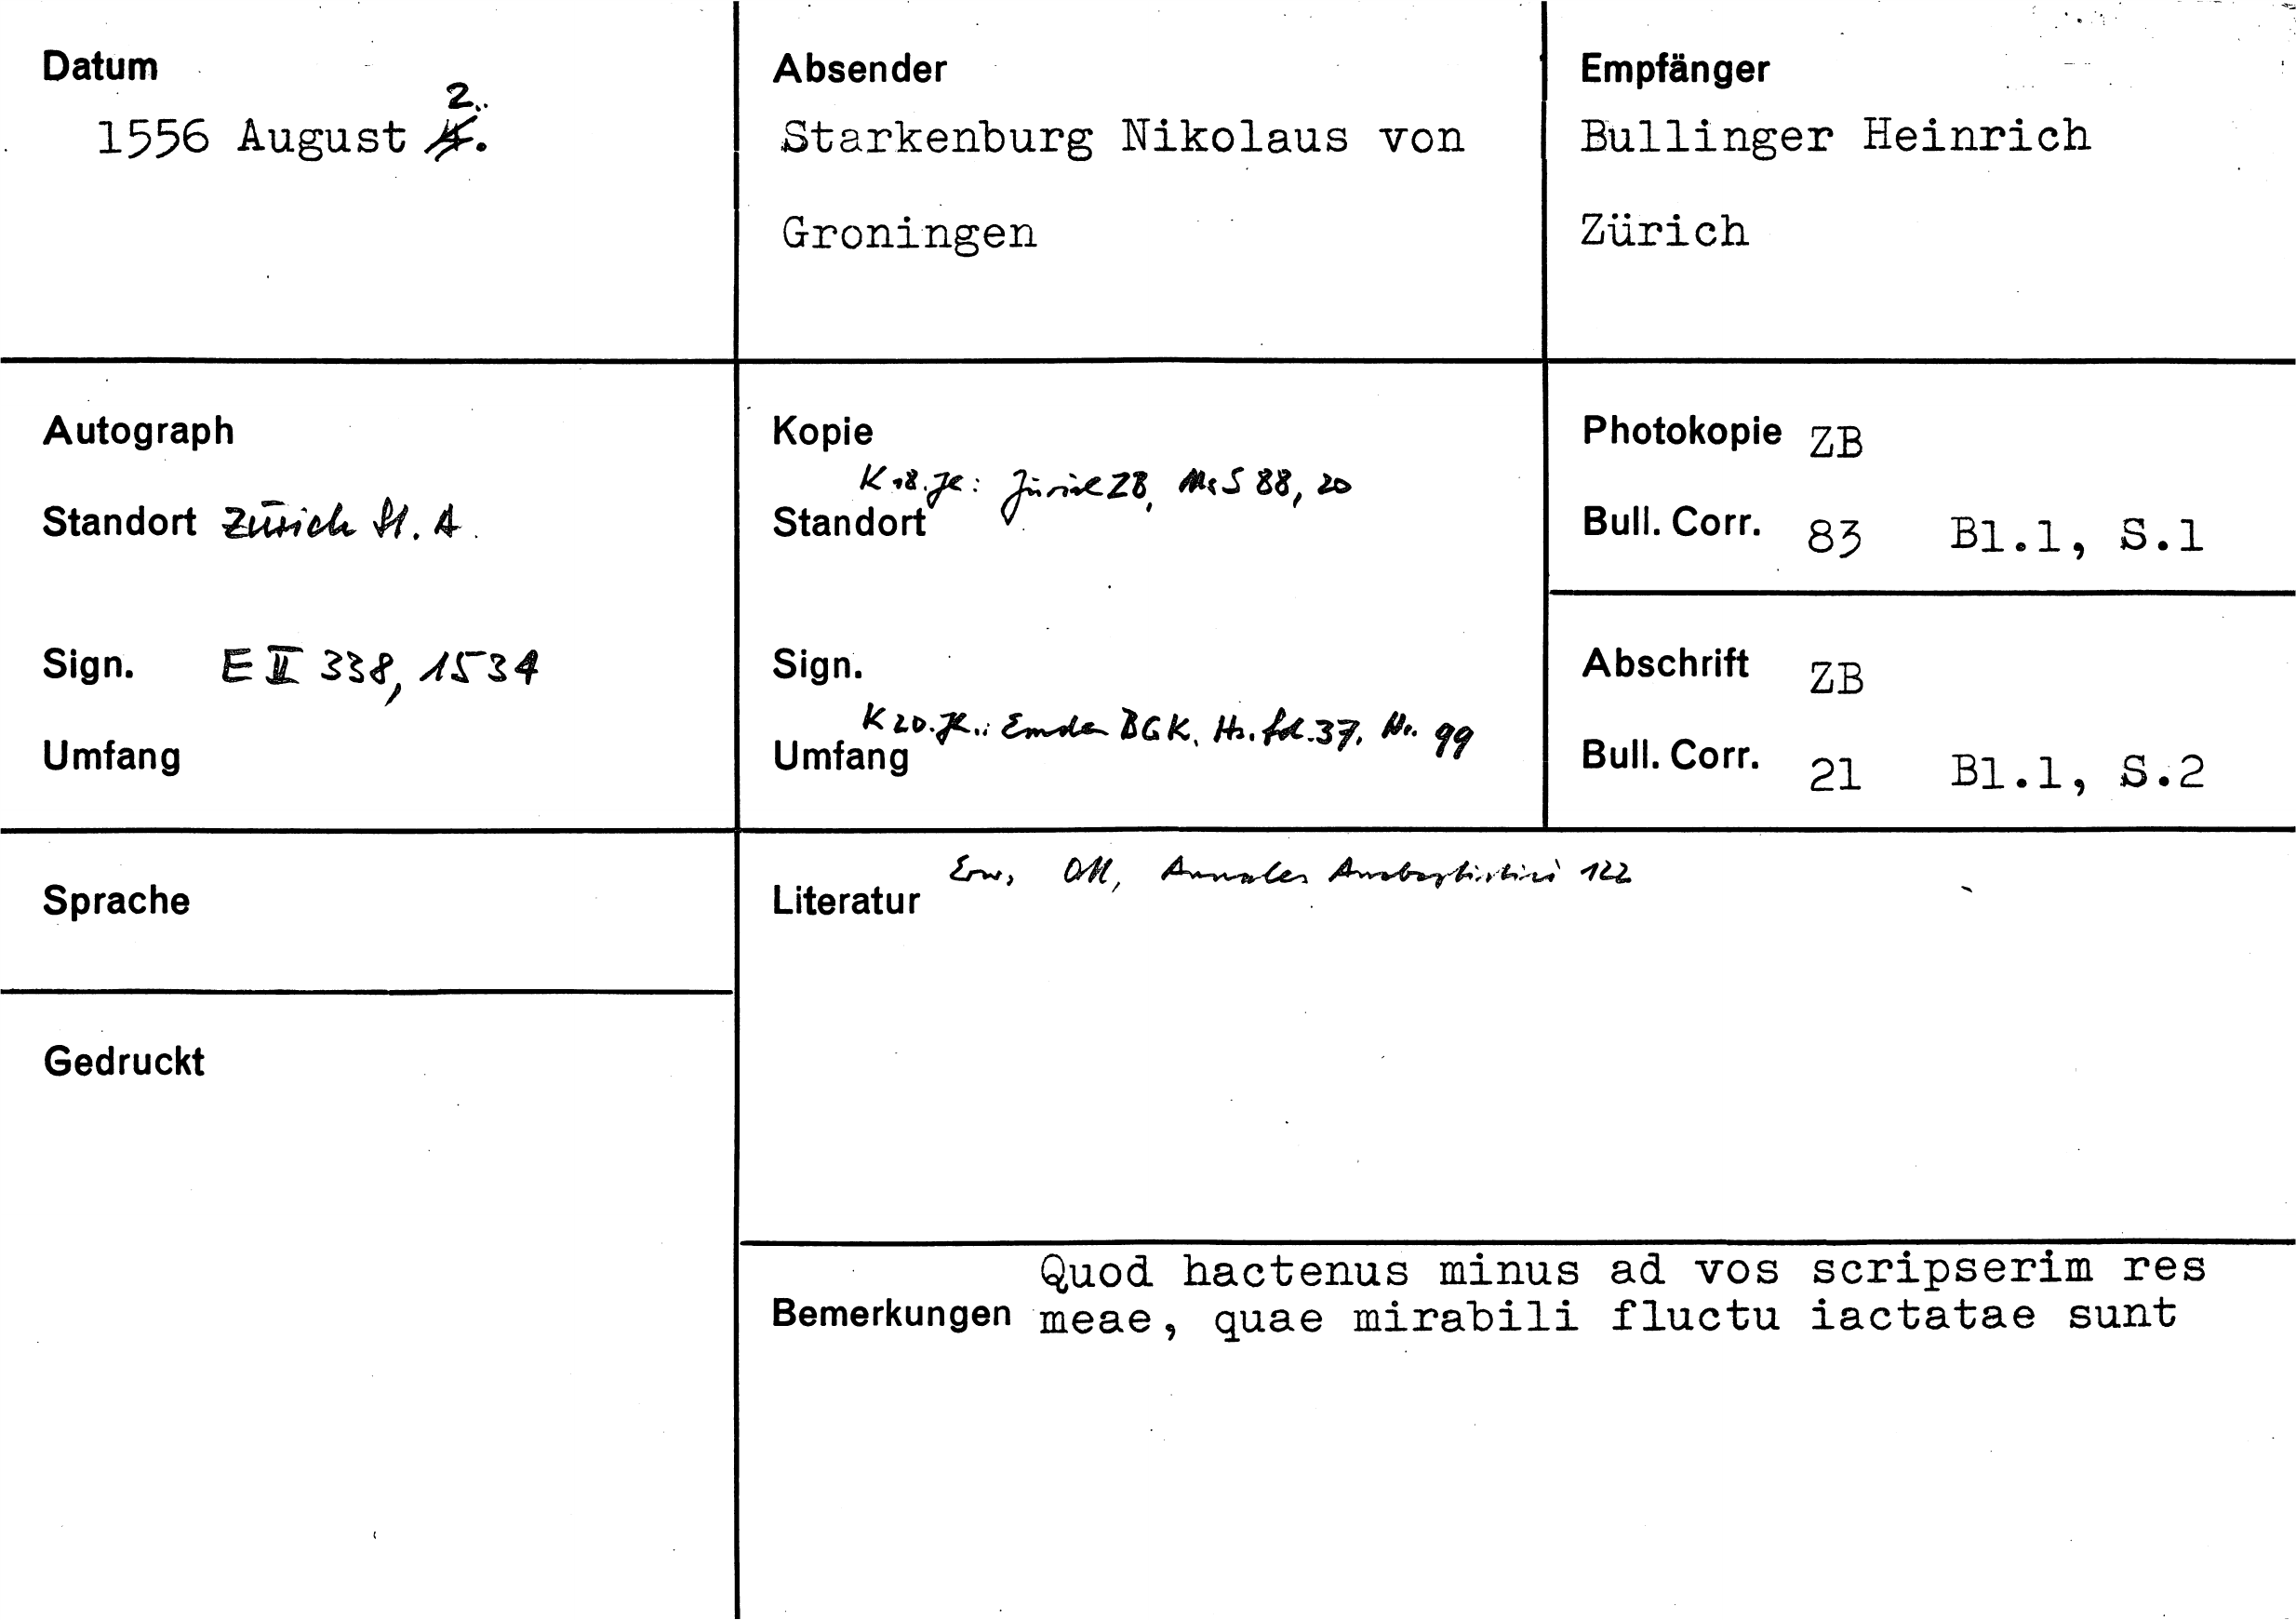 Datum
2.
1556 August 4.
Absender
Starkenburg Nikolaus von
Groningen
Empfänger
Bullinger Heinrich
Zürich
Autograph
Standort Zürich St. A.
Sign. E II 338, 1534
Umfang
Kopie
K 18. Jh: Zürich ZB, Ms S 88, 20
Standort
Sign.
K 20. Jh.: Emden BGK, Hs. fol. 37, Nr. 99
Umfang
Photokopie ZB
Bull. Corr. 83 Bl.1, S.1
Abschrift ZB
Bull. Corr. 21 Bl.1, S.2
Sprache
Gedruckt
Annales Anabaptistici 122
Literatur
Quod hactenus minus ad vos scripserim res
Bemerkungen meae, quae mirabili fluctu iactatae sunt